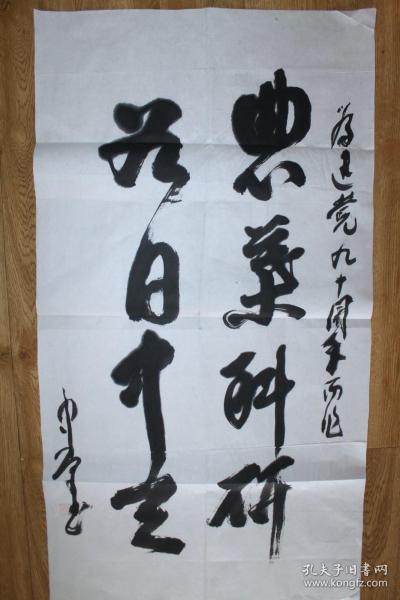 為建党九十周年而作
農業科研
若日中天
孔夫子旧书网
www.kongfz.com